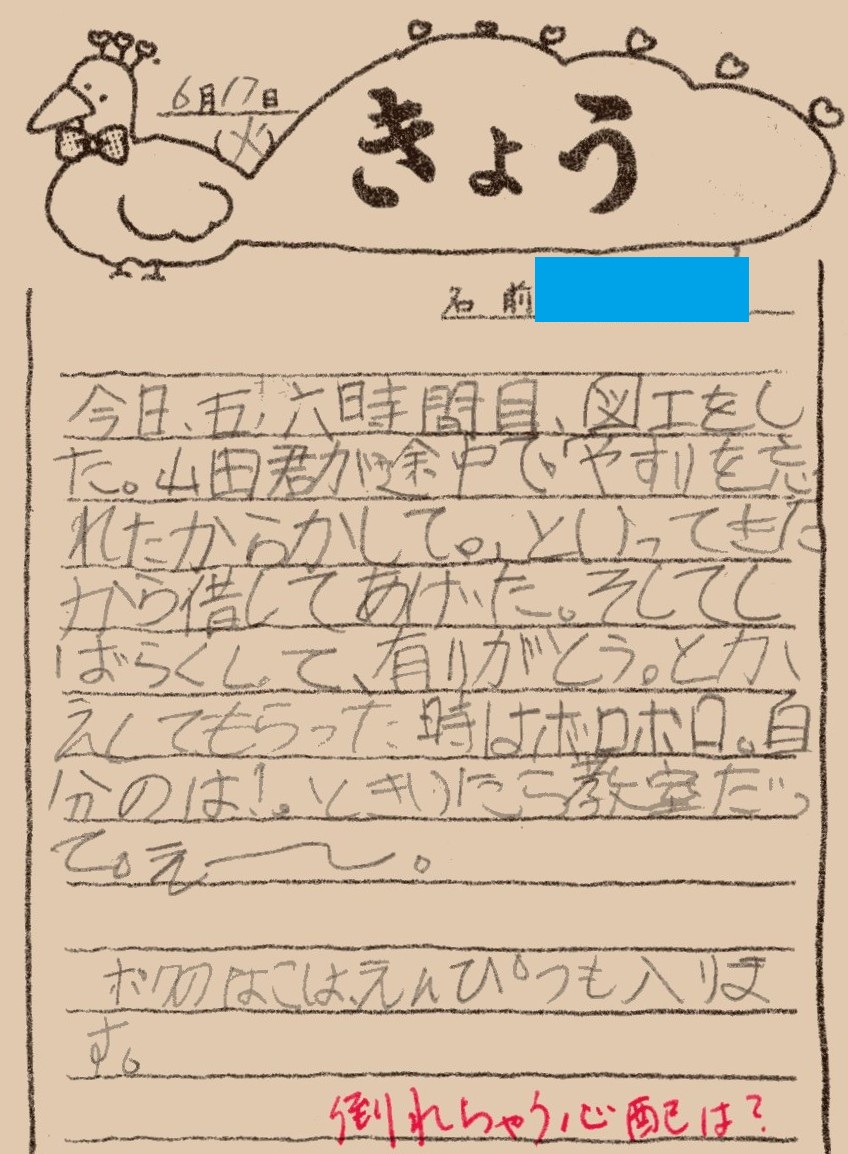 6月17日
(火)
きょう
名前
今日、五、六時間目、図工をし
た。山田君が途中で「やすりを忘
れたからかして。」といってきた
から借してあげた。そしてし
ばらくして、有りがとう。とか
えしてもらった時はボロボロ。自
分のは!。ときいたら教室だっ
て。え〜。
ボクのはこは、えんぴつも入りま
す。
倒れちゃう心配は?